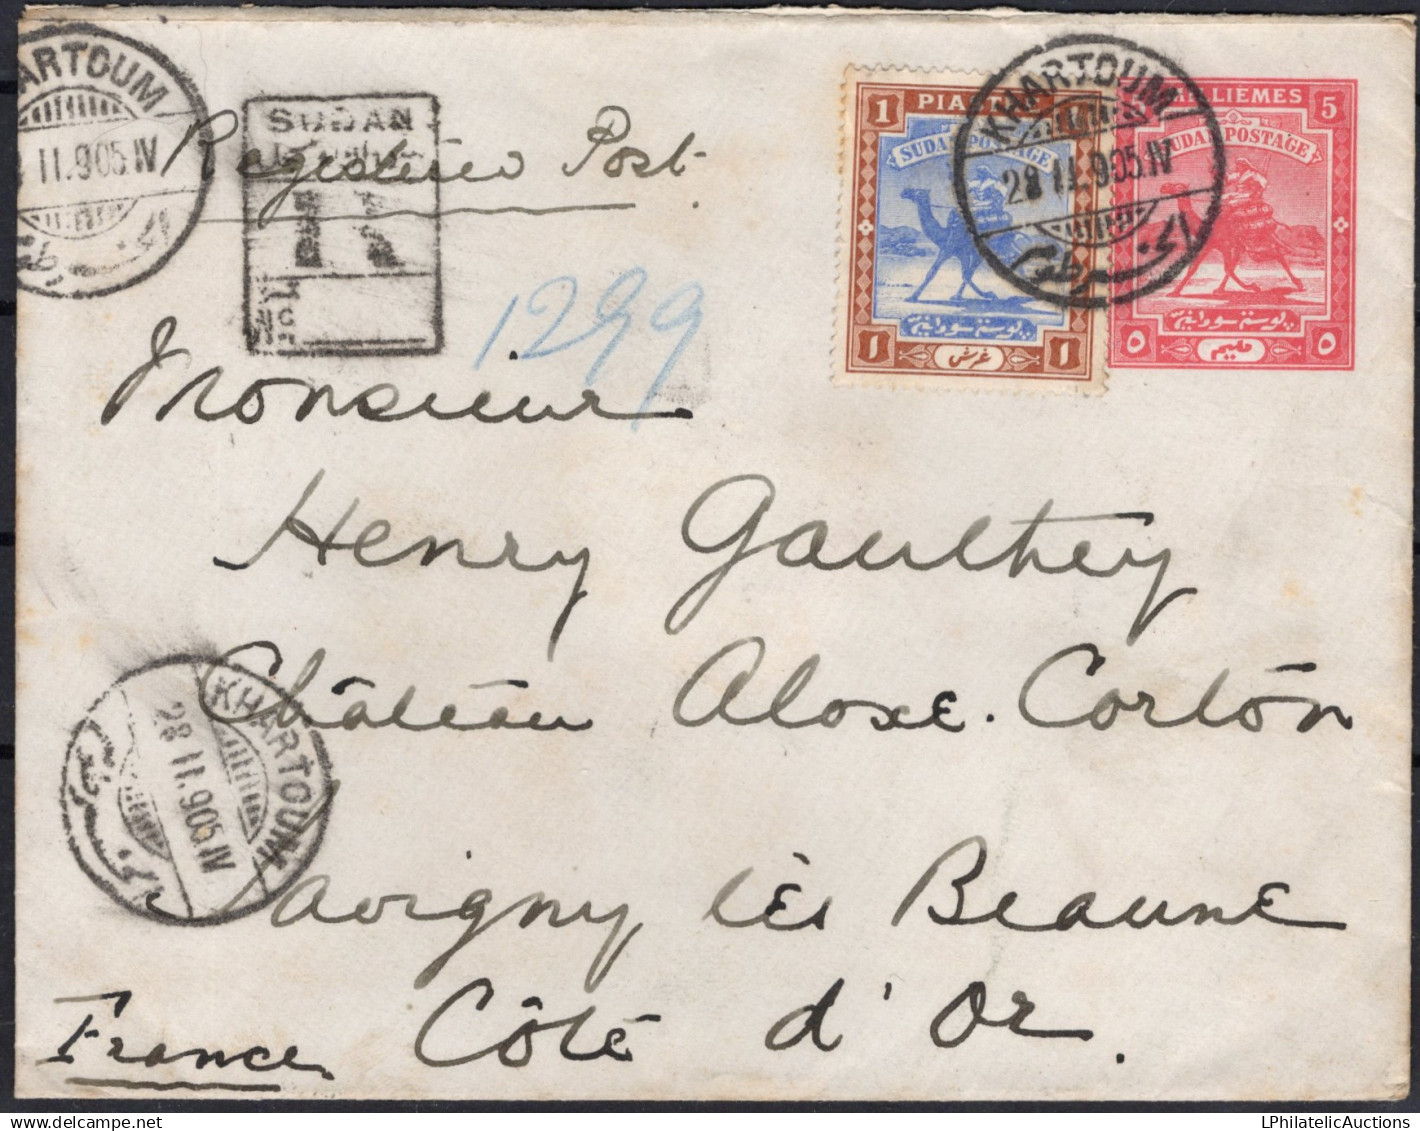 KHARTOUM
11.905.IV
الخرطوم
Registered Post.
SUDAN
R
No.
1299
1 PIASTRE 1
SUDAN POSTAGE
بوستة سودانية
١ غرش ١
KHARTOUM
28 11.905.IV
الخرطوم
MILLIÈMES 5
SUDAN POSTAGE
بوستة سودانية
٥ مليم ٥
Monsieur
Henry Gaulthey
Château Aloxe.Corton
Savigny lès Beaune
Côte d'Or.
France
KHARTOUM
28 11.905.IV
الخرطوم
LPhilatelicAuctions